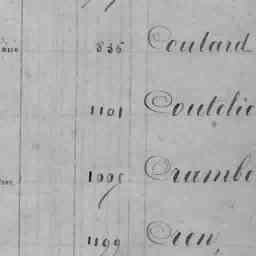 836 Coutard
1101 Coutelie
Crambe
1199 Cren,